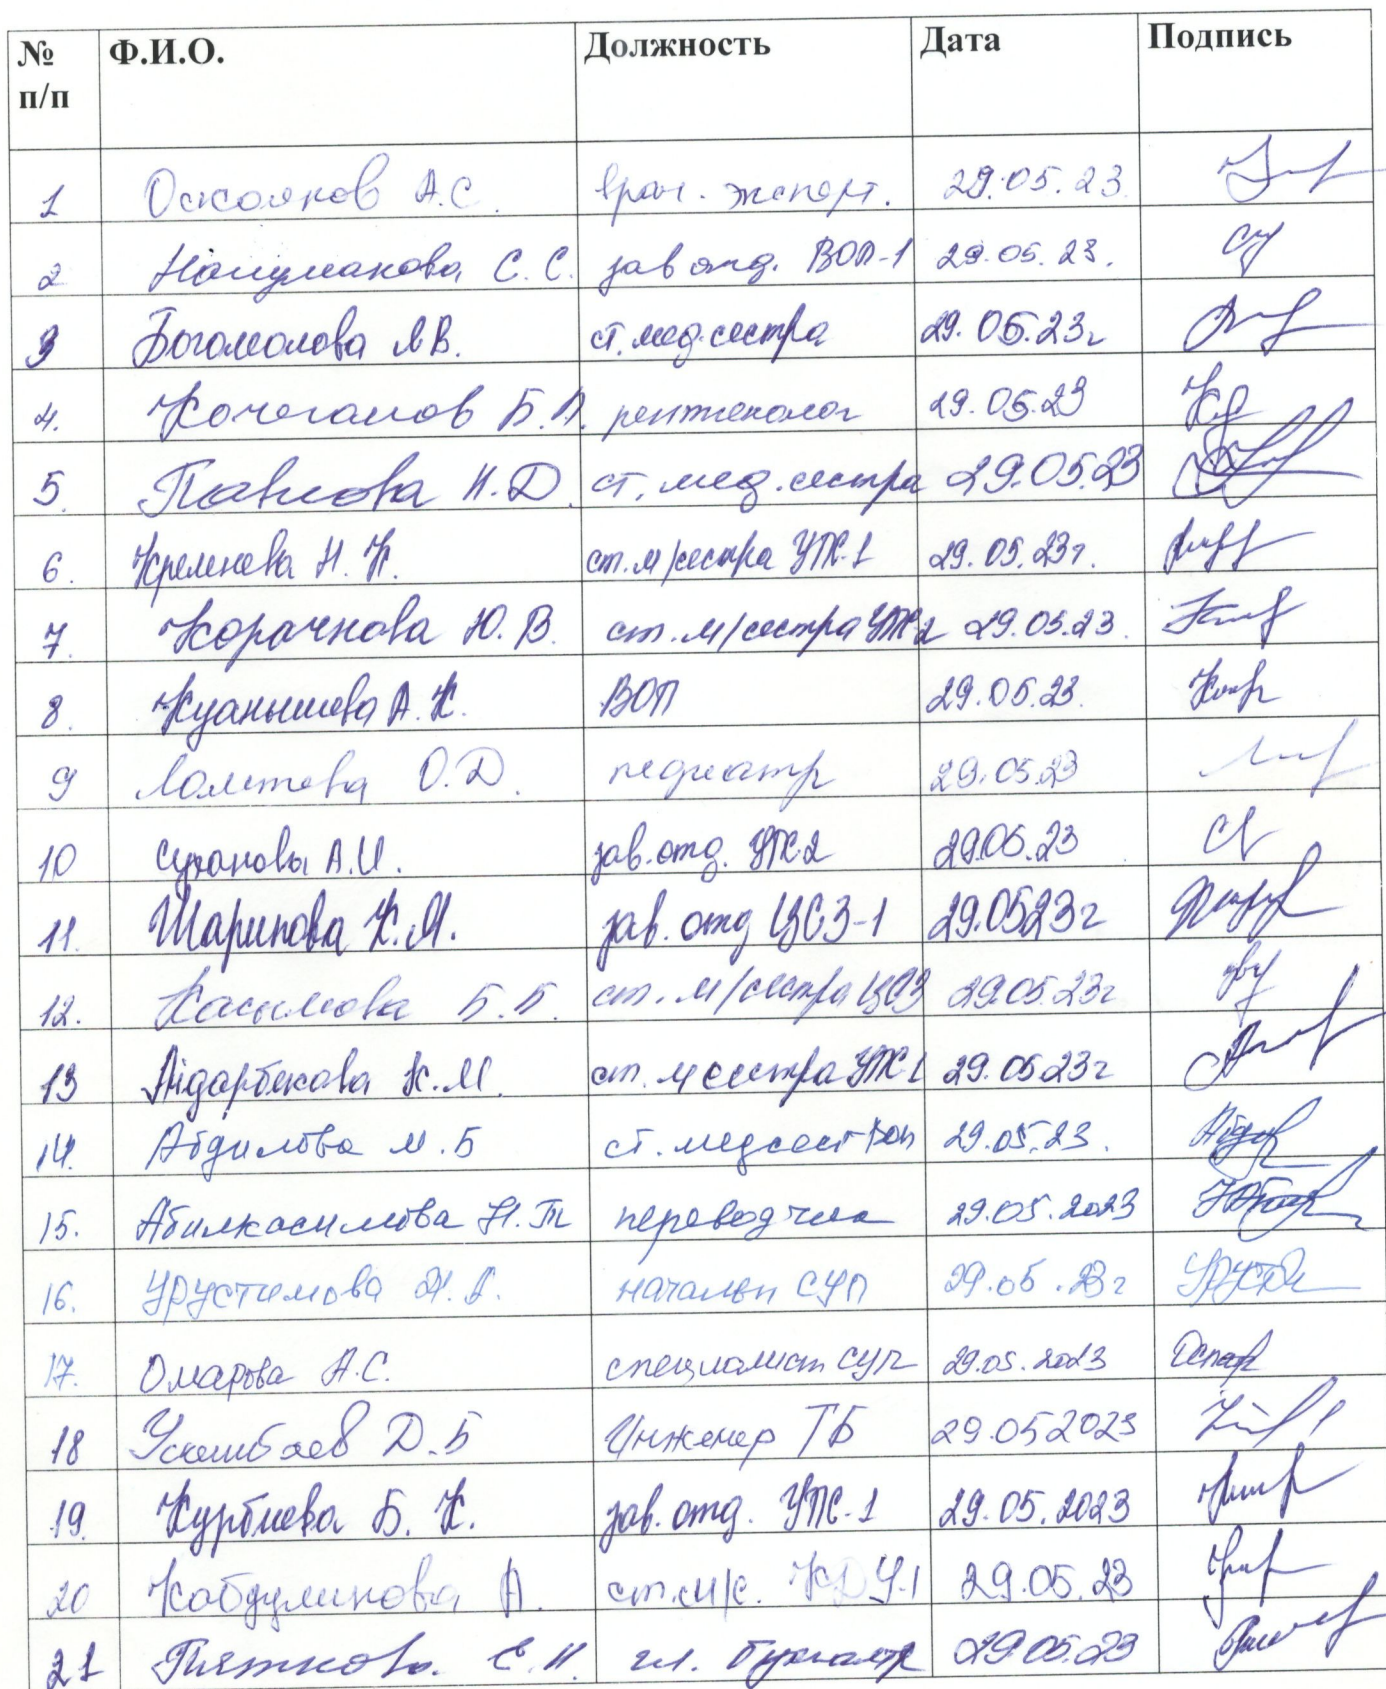 № п/п Ф.И.О. Должность Дата Подпись
1 А.С. врач. эксперт. 29.05.23.
2 С.С. зав отд. ВОП-1 29.05.23.
3 Богомолова ст. мед. сестра 29.05.23г
4. рентгенолог 29.05.23
5. Павлова Н.Д. ст. мед. сестра 29.05.23
6. Кременева Н.К. ст. м/сестра УПК-1 29.05.23г.
7. Корачкова Ю.В. ст. м/сестра 29.05.23.
8. Куанышева А.К. ВОП 29.05.23.
9 О.Д. педиатр 29.05.23
10 А.И. зав. отд. 29.05.23
11. Шарипова К.М. зав. отд ЦСЗ-1 29.0523г
12. Касымова Б.Б. ст. м/сестра ЦСЗ 29.05.23г
13 Айдарбекова К.М. ст. м сестра 29.05.23г
14. Абдилова М.Б ст. медсест ВОП 29.05.23.
15. Абилкасимова переводчик 29.05.2023
16. Урустимова начальн СУП 29.05.23г
17. Омарова А.С. специалист СУП 29.05.2023
18 Д.Б Инженер ТБ 29.052023
19. Б.К. зав. отд. 29.05.2023
20 А. ст.м/с. КДУ-1 29.05.23
21 гл. бухгалтер 29.05.23